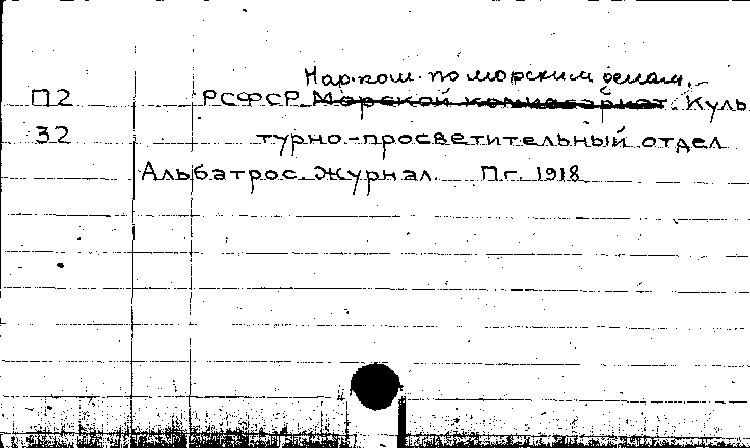 Нар.ком. по морским делам.
П2 РСФСР. Морской комиссариат. Куль-
32 турно-просветительный отдел
Альбатрос. Журнал. Пг. 1918